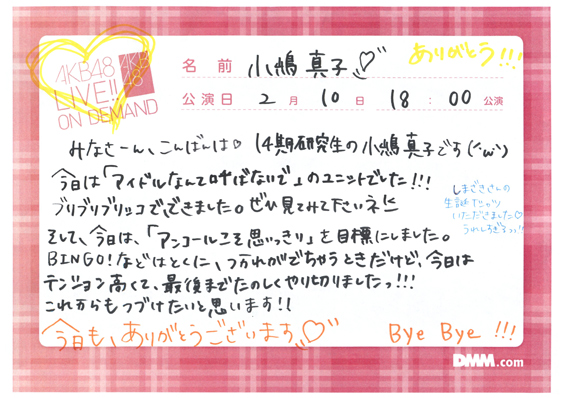 AKB48
LIVE!!
ON DEMAND
AKB
48
名前 小嶋真子♡
ありがとう!!!
公演日 2月10日 18:00 公演
みなさーん、こんばんは♡ 14期研究生の小嶋真子です(^ω^)
今日は「アイドルなんて呼ばないで」のユニットでした!!!
ブリブリブリッコでできました。ぜひ見てみて下いネ!
そして、今日は、「アンコールこそ思いっきり」を目標にしました。
BINGO!などはとくに、つかれがでちゃうときだけど、今日は
テンション高くて、最後までたのしくやり切りましたっ!!!
これからもつづけたいと思います!!
しまざきさんの
生誕Tシャツ
いただきました♡
うれしすぎるっっ!!
今日も、ありがとうございます♡
Bye Bye !!!
DMM.com